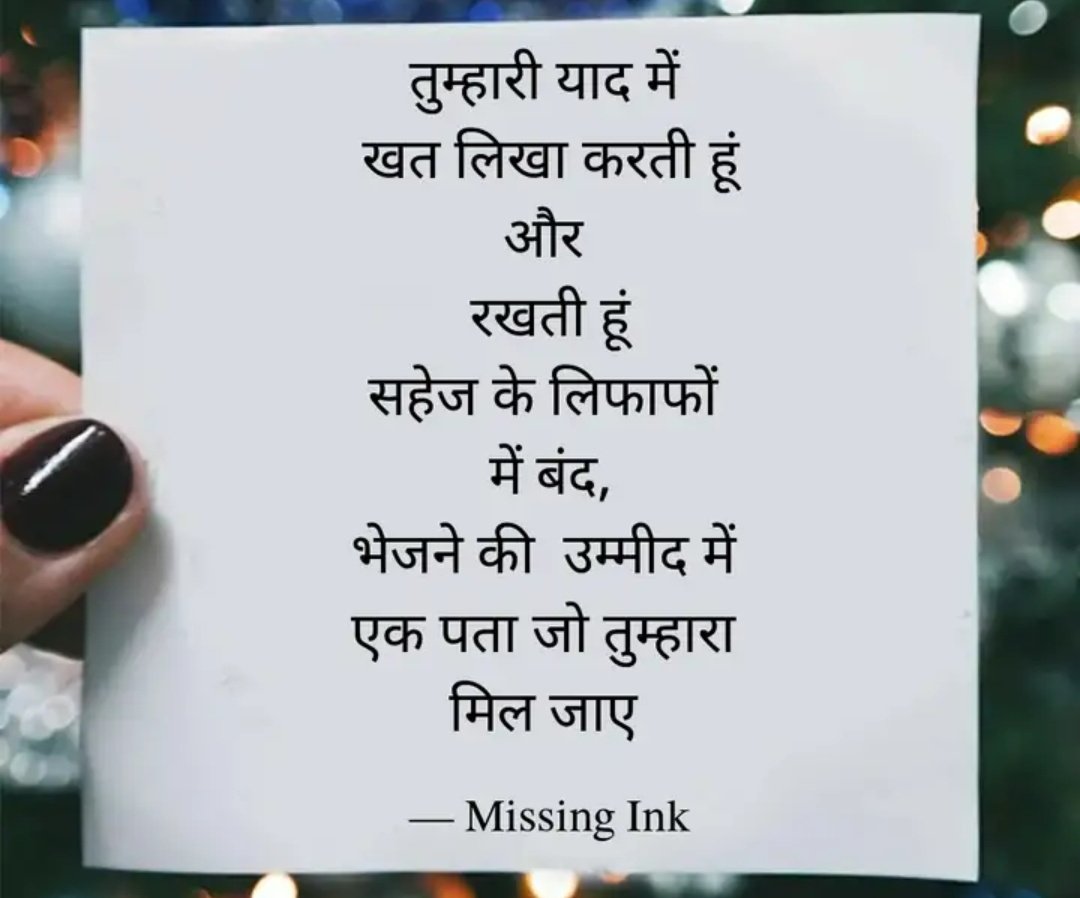 तुम्हारी याद में
खत लिखा करती हूं
और
रखती हूं
सहेज के लिफाफों
में बंद,
भेजने की  उम्मीद में
एक पता जो तुम्हारा
मिल जाए
— Missing Ink